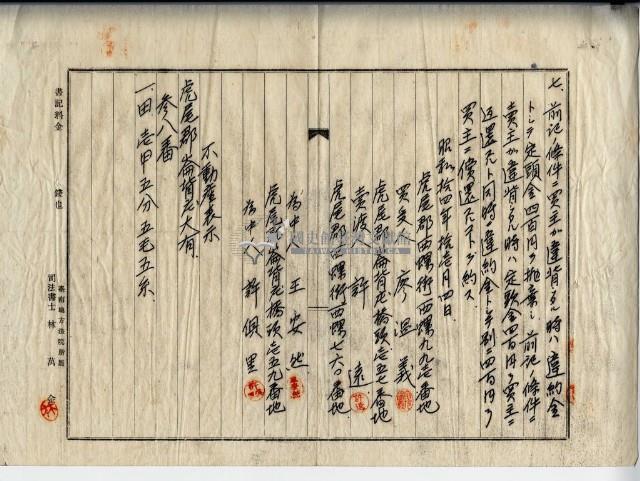 七、前記條件ニ買主カ違背シタル時ハ違約金
トシテ定頭金四百円ヲ抛棄シ前記ノ條件ニ
賣主カ違背シタル時ハ定頭金四百円ヲ買主ニ
返還スルト同時違約金トシテ別ニ四百円ヲ
買主ニ償還スルモノトヲ約ス
昭和拾四年拾壱月四日
虎尾郡西螺街西螺九九七番地
買受 廖溫義
虎尾郡崙背庄橋頭壱五七番地
賣渡 許遠
虎尾郡西螺街西螺七六〇番地
為中 王安然
虎尾郡崙背庄橋頭壱五九番地
為中 許俱里
不動産表示
虎尾郡崙背庄大有
参八番
一、田 壱甲五分五毛五糸
書記料金 錢也
臺南地方法院所属
司法書士 林萬金